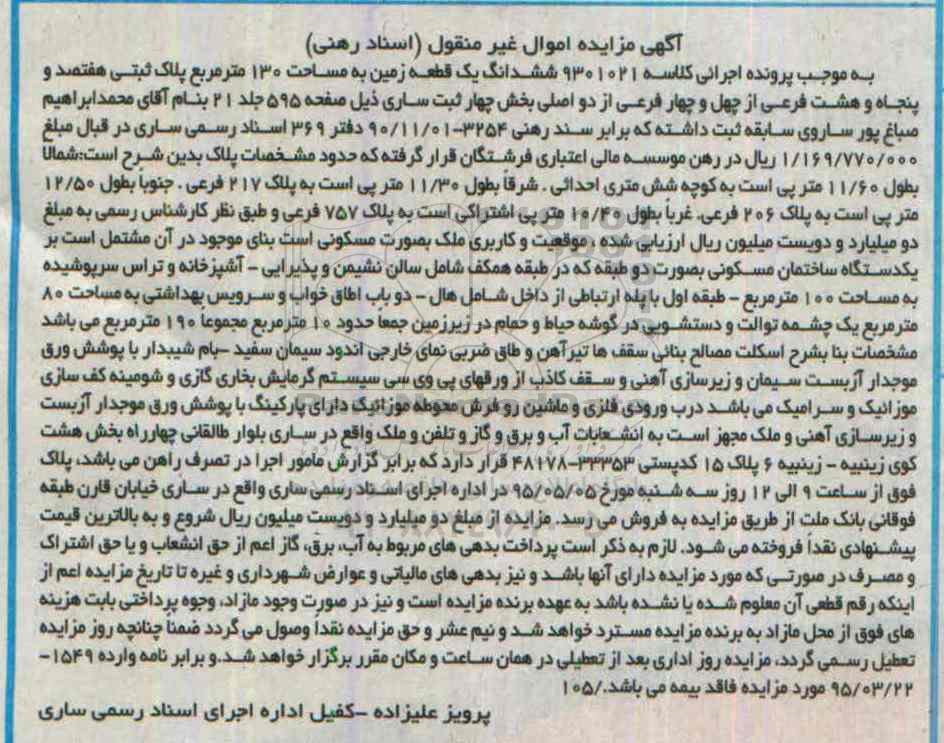 آگهی مزایده اموال غیر منقول (اسناد رهنی)
به موجب پرونده اجرائی کلاسه ۹۳۰۱۰۲۱ ششدانگ یک قطعه زمین به مساحت ۱۳۰ مترمربع پلاک ثبتی هفتصد و
پنجاه و هشت فرعی از چهل و چهار فرعی از دو اصلی بخش چهار ثبت ساری ذیل صفحه ۵۹۵ جلد ۲۱ بنام آقای محمدابراهیم
صباغ پور ساروی سابقه ثبت داشته که برابر سند رهنی ۳۲۵۴-۹۰/۱۱/۰۱ دفتر ۳۶۹ اسناد رسمی ساری در قبال مبلغ
۱/۱۶۹/۷۷۰/۰۰۰ ریال در رهن موسسه مالی اعتباری فرشتگان قرار گرفته که حدود مشخصات پلاک بدین شرح است:شمالا
بطول ۱۱/۶۰ متر پی است به کوچه شش متری احداثی . شرقاً بطول ۱۱/۳۰ متر پی است به پلاک ۲۱۷ فرعی . جنوباً بطول ۱۲/۵۰
متر پی است به پلاک ۲۰۶ فرعی. غرباً بطول ۱۰/۴۰ متر پی اشتراکی است به پلاک ۷۵۷ فرعی و طبق نظر کارشناس رسمی به مبلغ
دو میلیارد و دویست میلیون ریال ارزیابی شده ، موقعیت و کاربری ملک بصورت مسکونی است بنای موجود در آن مشتمل است بر
یکدستگاه ساختمان مسکونی بصورت دو طبقه که در طبقه همکف شامل سالن نشیمن و پذیرایی - آشپزخانه و تراس سرپوشیده
به مساحت ۱۰۰ مترمربع - طبقه اول با پله ارتباطی از داخل شامل هال - دو باب اطاق خواب و سرویس بهداشتی به مساحت ۸۰
مترمربع یک چشمه توالت و دستشویی در گوشه حیاط و حمام در زیرزمین جمعاً حدود ۱۰ مترمربع مجموعاً ۱۹۰ مترمربع می باشد
مشخصات بنا بشرح اسکلت مصالح بنائی سقف ها تیرآهن و طاق ضربی نمای خارجی اندود سیمان سفید -بام شیبدار با پوشش ورق
موجدار آزبست سیمان و زیرسازی آهنی و سقف کاذب از ورقهای پی وی سی سیستم گرمایش بخاری گازی و شومینه کف سازی
موزائیک و سرامیک می باشد درب ورودی فلزی و ماشین رو فرش محوطه موزائیک دارای پارکینگ با پوشش ورق موجدار آزبست
و زیرسازی آهنی و ملک مجهز است به انشعابات آب و برق و گاز و تلفن و ملک واقع در ساری بلوار طالقانی چهارراه بخش هشت
کوی زینبیه - زینبیه ۶ پلاک ۱۵ کدپستی ۳۳۳۵۳-۴۸۱۷۸ قرار دارد که برابر گزارش مامور اجرا در تصرف راهن می باشد، پلاک
فوق از ساعت ۹ الی ۱۲ روز سه شنبه مورخ ۹۵/۰۵/۰۵ در اداره اجرای اسناد رسمی ساری واقع در ساری خیابان قارن طبقه
فوقانی بانک ملت از طریق مزایده به فروش می رسد. مزایده از مبلغ دو میلیارد و دویست میلیون ریال شروع و به بالاترین قیمت
پیشنهادی نقداً فروخته می شود. لازم به ذکر است پرداخت بدهی های مربوط به آب، برق، گاز اعم از حق انشعاب و یا حق اشتراک
و مصرف در صورتی که مورد مزایده دارای آنها باشد و نیز بدهی های مالیاتی و عوارض شهرداری و غیره تا تاریخ مزایده اعم از
اینکه رقم قطعی آن معلوم شده یا نشده باشد به عهده برنده مزایده است و نیز در صورت وجود مازاد، وجوه پرداختی بابت هزینه
های فوق از محل مازاد به برنده مزایده مسترد خواهد شد و نیم عشر و حق مزایده نقداً وصول می گردد ضمناً چنانچه روز مزایده
تعطیل رسمی گردد، مزایده روز اداری بعد از تعطیلی در همان ساعت و مکان مقرر برگزار خواهد شد.و برابر نامه وارده ۱۵۴۹-
۹۵/۰۳/۲۲ مورد مزایده فاقد بیمه می باشد./۱۰۵
پرویز علیزاده -کفیل اداره اجرای اسناد رسمی ساری